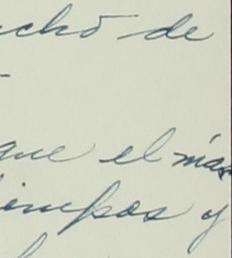 ucho de
que el mas
iempos y